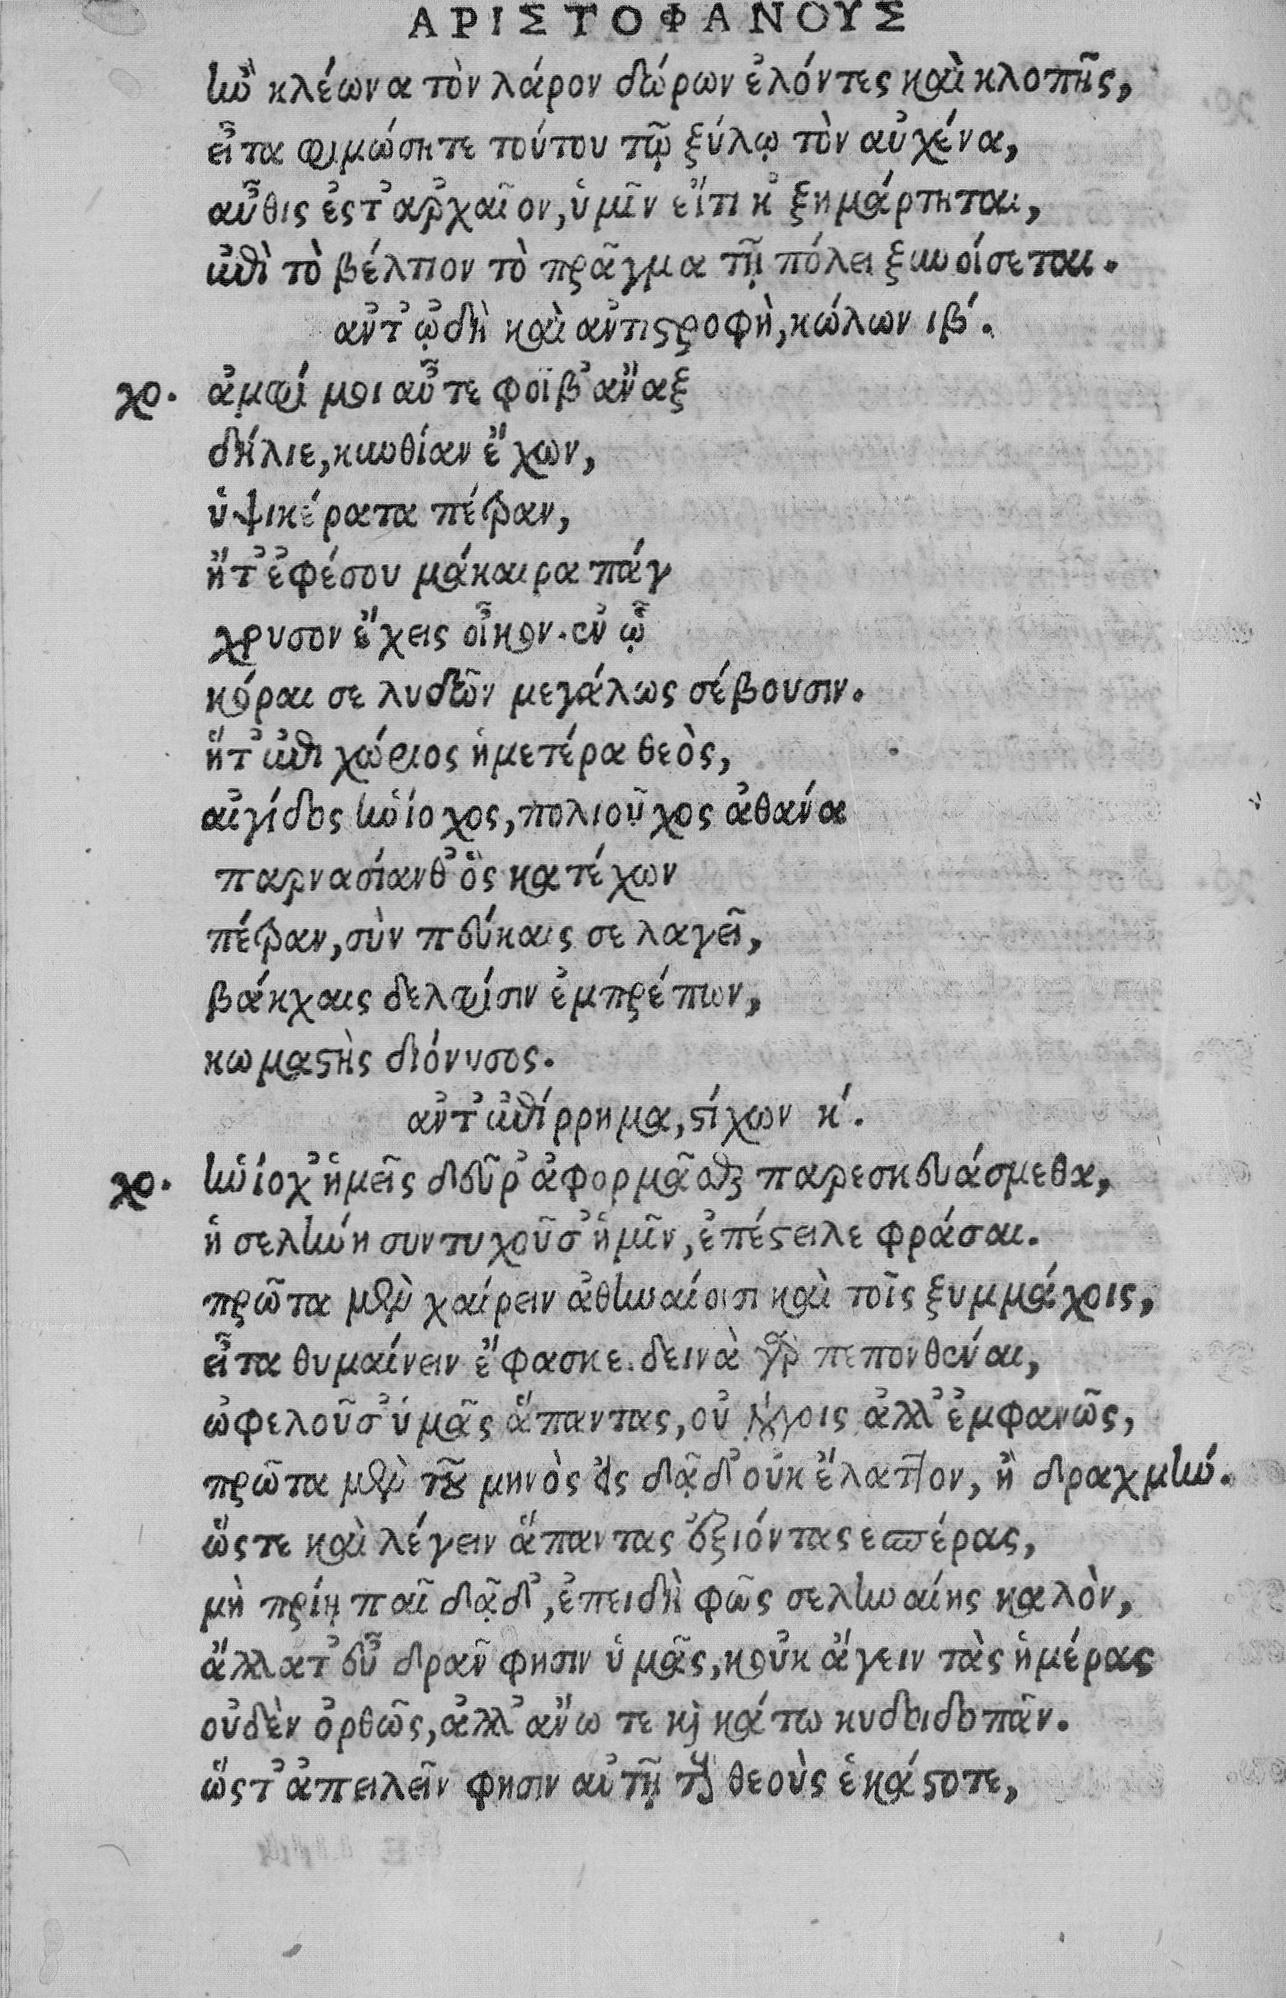 ΑΡΙΣΤΟΦΑΝΟΥΣ
ἢν κλέωνα τὸν λάρον δώρων ἑλόντες καὶ κλοπῆς,
εἶτα φιμώσητε τούτου τῷ ξύλῳ τὸν αὐχένα,
αὖθις ἐς τ' ἀρχαῖον, ὑμῖν εἴτι κ' ξημάρτηται,
ἐπὶ τὸ βέλτιον τὸ πρᾶγμα τῇ πόλει ξυνοίσεται.
ἀντῳδὴ καὶ ἀντιστροφὴ, κώλων ιβ´.
χο. ἀμφί μοι αὖτε φοῖβ' ἄναξ
δήλιε, κυνθίαν ἔχων,
ὑψικέρατα πέτραν,
ἥτ' ἐφέσου μάκαιρα πάγ
χρυσον ἔχεις οἶκον. ἐν ᾧ
κόραι σε λυδῶν μεγάλως σέβουσιν.
ἥτ' ἐπιχώριος ἡμετέρα θεὸς,
αἰγίδος ἡνίοχος, πολιοῦχος ἀθάνα
παρνασίανθ' ὃς κατέχων
πέτραν, σὺν πεύκαις σελαγεῖ,
βάκχαις δελφίσιν ἐμπρέπων,
κωμαστὴς διόνυσος.
ἀντεπίρρημα, στίχων κ´.
χο. ἡνίοχ' ἡμεῖς δεῦρ' ἀφορμᾶσθαι παρεσκευάσμεθα,
ἡ σελήνη συντυχοῦσ' ἡμῖν, ἐπέστειλε φράσαι.
πρῶτα μὲν χαίρειν ἀθηναίοισι καὶ τοῖς ξυμμάχοις,
εἶτα θυμαίνειν ἔφασκε. δεινὰ γὰρ πεπονθέναι,
ὠφελοῦσ' ὑμᾶς ἅπαντας, οὐ λόγοις ἀλλ' ἐμφανῶς,
πρῶτα μὲν τοῦ μηνὸς εἰς δᾷδ' οὐκ ἔλαττον, ἢ δραχμήν.
ὥστε καὶ λέγειν ἅπαντας ἐξιόντας εσπέρας,
μὴ πρίῃ παῖ δᾷδ', ἐπειδὴ φῶς σεληναίης καλὸν,
ἄλλα τ' εὖ δρᾶν φησιν ὑμᾶς, κοὐκ ἄγειν τὰς ἡμέρας
οὐδὲν ὀρθῶς, ἀλλ' ἄνω τε καὶ κάτω κυδοιδοπᾶν.
ὥστ' ἀπειλεῖν φησιν αὐτῇ τοὺς θεοὺς ἑκάστοτε,